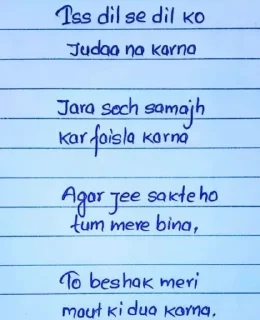 Iss dil se dil ko
Judaa na karna
Jara soch samajh
kar faisla karna
Agar jee sakte ho
tum mere bina,
To beshak meri
maut ki dua karna.